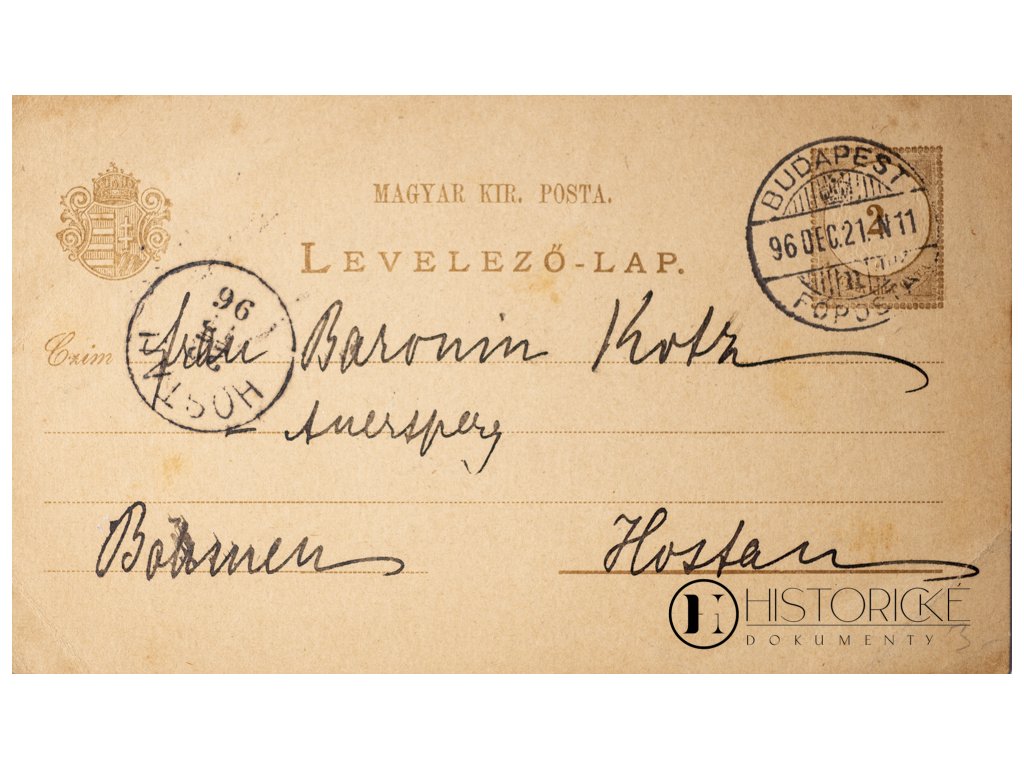 MAGYAR KIR. POSTA.
LEVELEZŐ-LAP.
BUDAPEST
96 DEC. 21. N 11
FŐPOSTA
2
HOSTAU
96
Czim
Frau Baronin Kotz
Auersperg
Böhmen
Hostau
HISTORICKÉ
DOKUMENTY
3